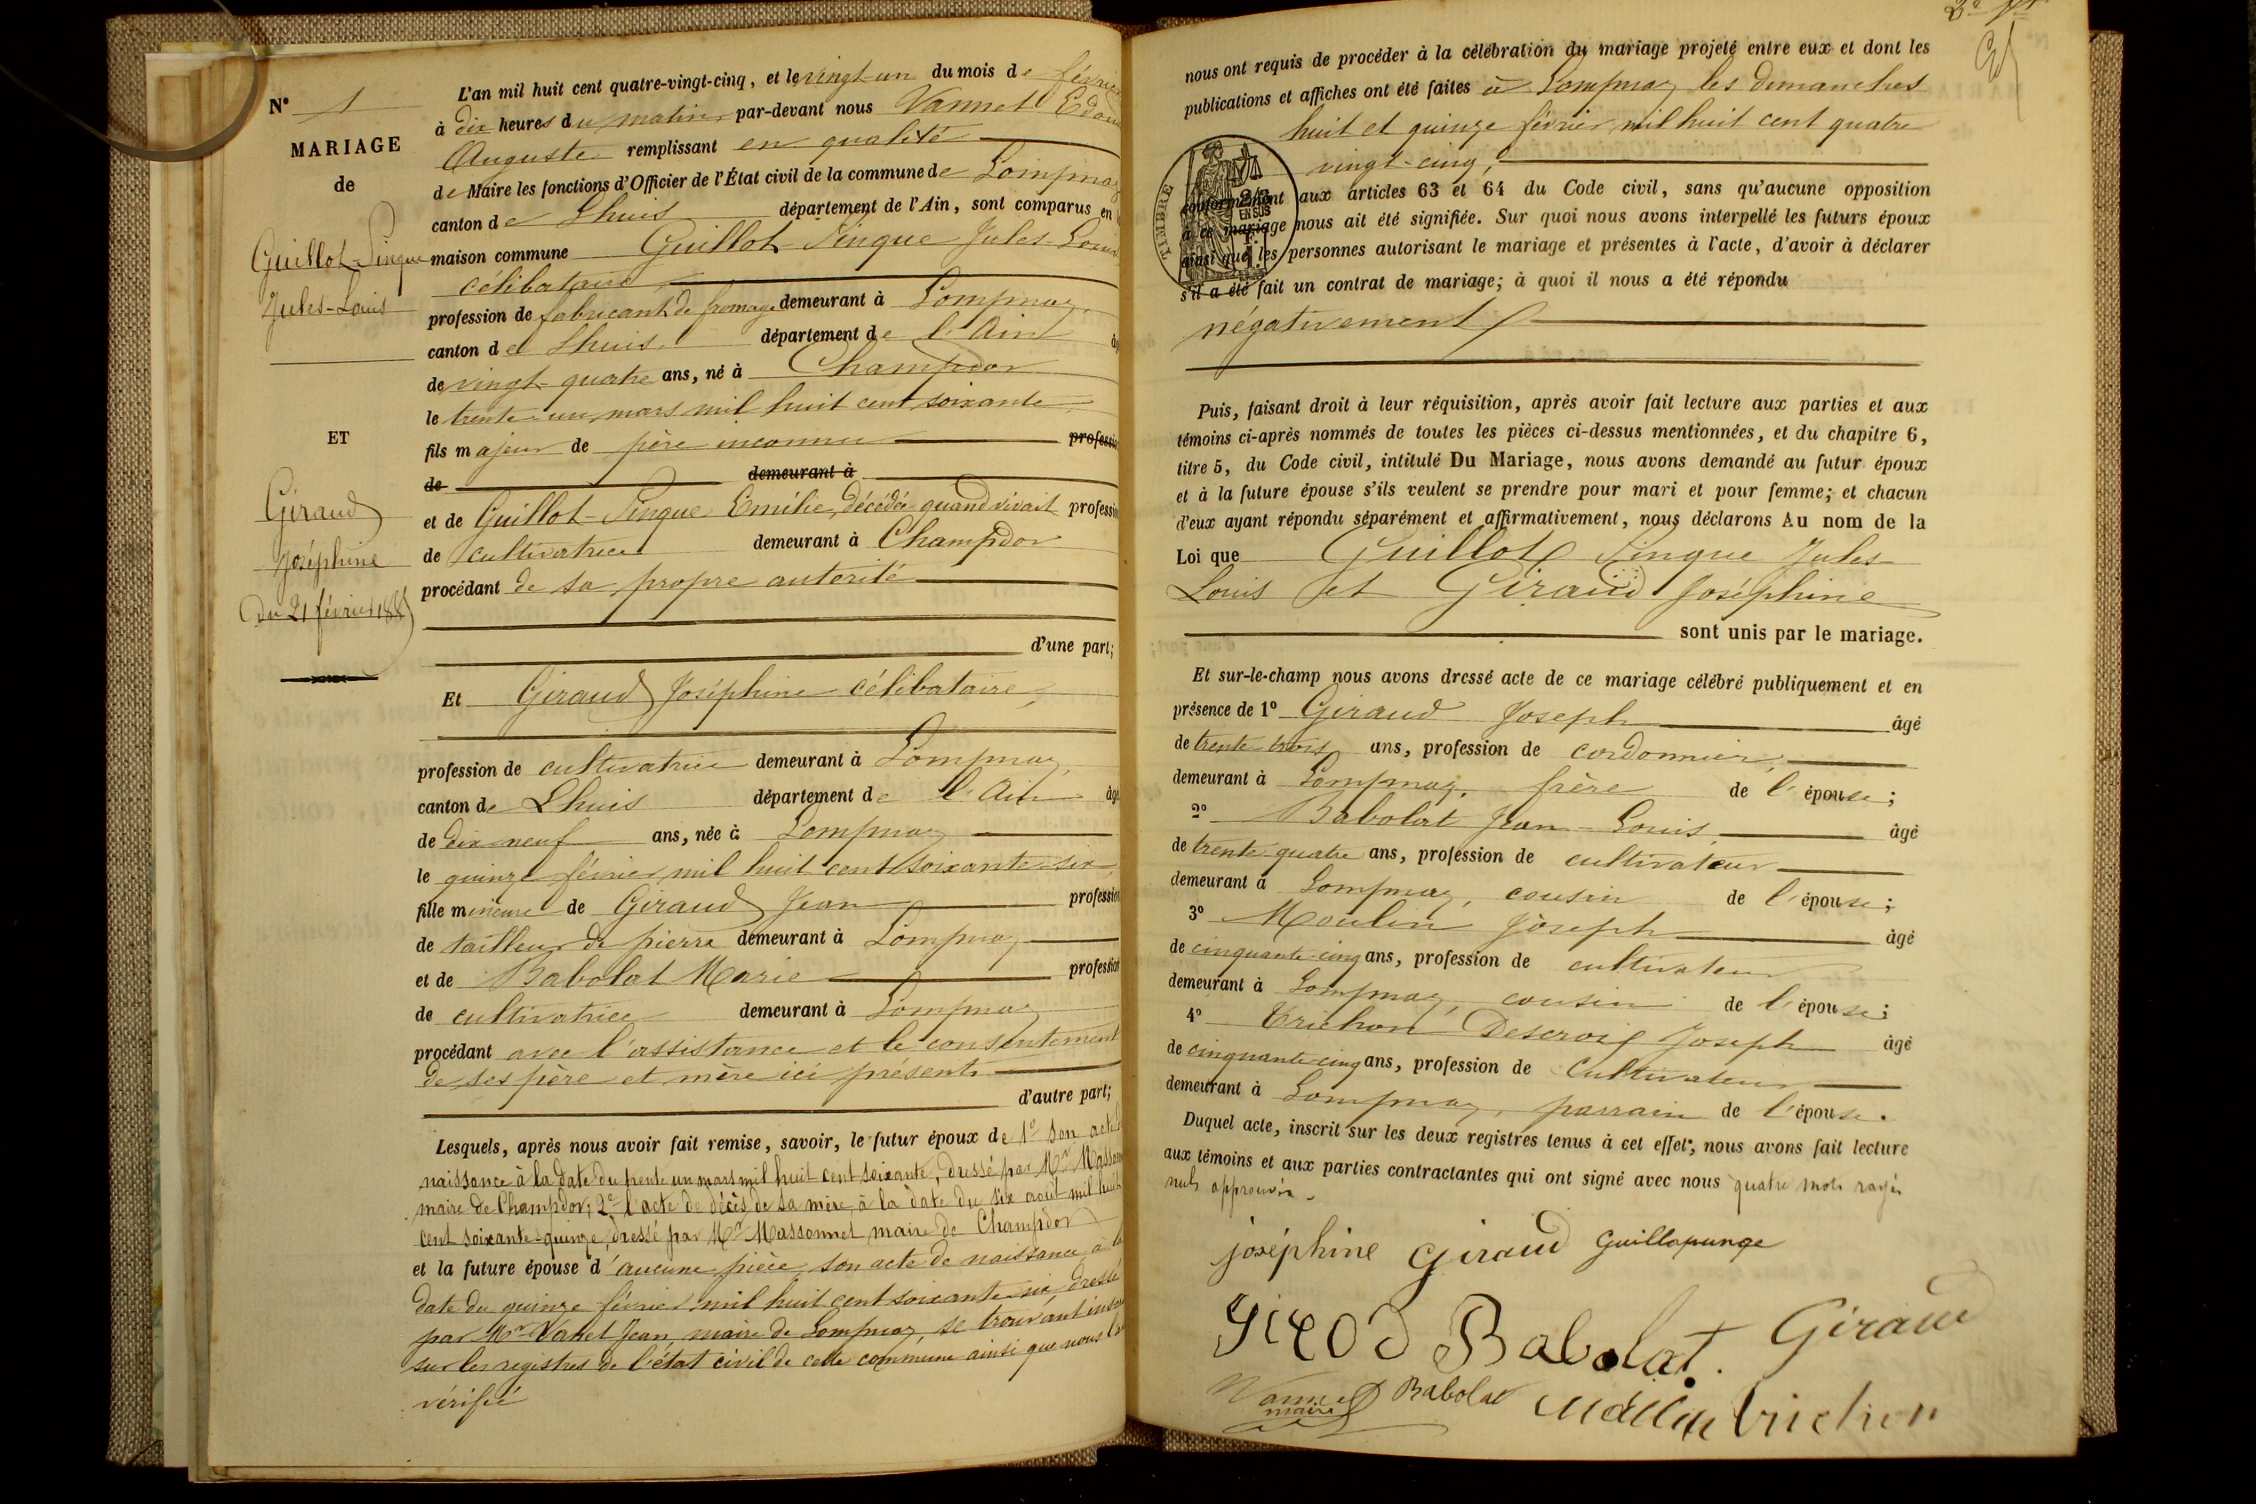 N° 1
MARIAGE
de
Guillot-Pingue
Jules-Louis
ET
Giraud
Joséphine
Du 21 février 1885
L'an mil huit cent quatre-vingt-cinq, et le vingt-un du mois de février
à dix heures du matin par-devant nous Vannet
Auguste remplissant en qualité
de Maire les fonctions d'Officier de l'État civil de la commune de Lompnaz
canton de Lhuis département de l'Ain, sont comparus en
maison commune Guillot-Pingue Jules-Louis
célibataire
profession de fabricant de fromage demeurant à Lompnaz,
canton de Lhuis département de l'Ain
de vingt-quatre ans, né à Champdor
le trente-un mars mil huit cent soixante
fils majeur de père inconnu profession
de demeurant à
et de Guillot-Pingue Emélie, décédée quand vivait profession
de cultivatrice demeurant à Champdor
procédant de sa propre autorité
d'une part;
Et Giraud Joséphine célibataire,
profession de cultivatrice demeurant à Lompnaz,
canton de Lhuis département de l'Ain âgé
de dix-neuf ans, née à Lompnaz
le quinze février mil huit cent soixante-six,
fille mineure de Giraud Jean profession
de tailleur de pierre demeurant à Lompnaz
et de Babolat Marie profession
de cultivatrice demeurant à Lompnaz
procédant avec l'assistance et le consentement
de ses père et mère ici présents
d'autre part;
Lesquels, après nous avoir fait remise, savoir, le futur époux de 1° son acte de
naissance à la date du trente un mars mil huit cent soixante, dressé par Mr Massonnet
maire de Champdor; 2° l'acte de décès de sa mère, à la date du six août mil huit
cent soixante-quinze, dressé par Mr Massonnet maire de Champdor
et la future épouse d'aucune pièce, son acte de naissance à la
date du quinze février mil huit cent soixante-six dressé
par Mr Vanet Jean, maire de Lompnaz, se trouvant inscrit
sur les registres de l'état civil de cette commune ainsi que nous l'avons
vérifié
nous ont requis de procéder à la célébration du mariage projeté entre eux et dont les
publications et affiches ont été faites à Lompnaz les dimanches
huit et quinze février mil huit cent quatre
vingt-cinq,
TIMBRE
2/10
EN SUS
conformément aux articles 63 et 64 du Code civil, sans qu'aucune opposition
à ce mariage nous ait été signifiée. Sur quoi nous avons interpellé les futurs époux
ainsi que les personnes autorisant le mariage et présentes à l'acte, d'avoir à déclarer
s'il a été fait un contrat de mariage; à quoi il nous a été répondu
négativement
Puis, faisant droit à leur réquisition, après avoir fait lecture aux parties et aux
témoins ci-après nommés de toutes les pièces ci-dessus mentionnées, et du chapitre 6,
titre 5, du Code civil, intitulé Du Mariage, nous avons demandé au futur époux
et à la future épouse s'ils veulent se prendre pour mari et pour femme; et chacun
d'eux ayant répondu séparément et affirmativement, nous déclarons Au nom de la
Loi que Guillot Pingue Jules
Louis et Giraud Joséphine
sont unis par le mariage.
Et sur-le-champ nous avons dressé acte de ce mariage célébré publiquement et en
présence de 1° Giraud Joseph âgé
de trente-trois ans, profession de cordonnier,
demeurant à Lompnaz, frère de l'épouse;
2° Babolat Jean-Louis âgé
de trente-quatre ans, profession de cultivateur
demeurant à Lompnaz, cousin de l'épouse;
3° Moulin Joseph âgé
de cinquante-cinq ans, profession de cultivateur
demeurant à Lompnaz, cousin de l'épouse;
4° Trichon Descroix Joseph âgé
de cinquante-cinq ans, profession de cultivateur
demeurant à Lompnaz, parrain de l'épouse.
Duquel acte, inscrit sur les deux registres tenus à cet effet, nous avons fait lecture
aux témoins et aux parties contractantes qui ont signé avec nous quatre mots rayés
nuls approuvés.
joséphine giraud guillopunge
Babolat. Giraud
Vannet Babolat Trichon
maire